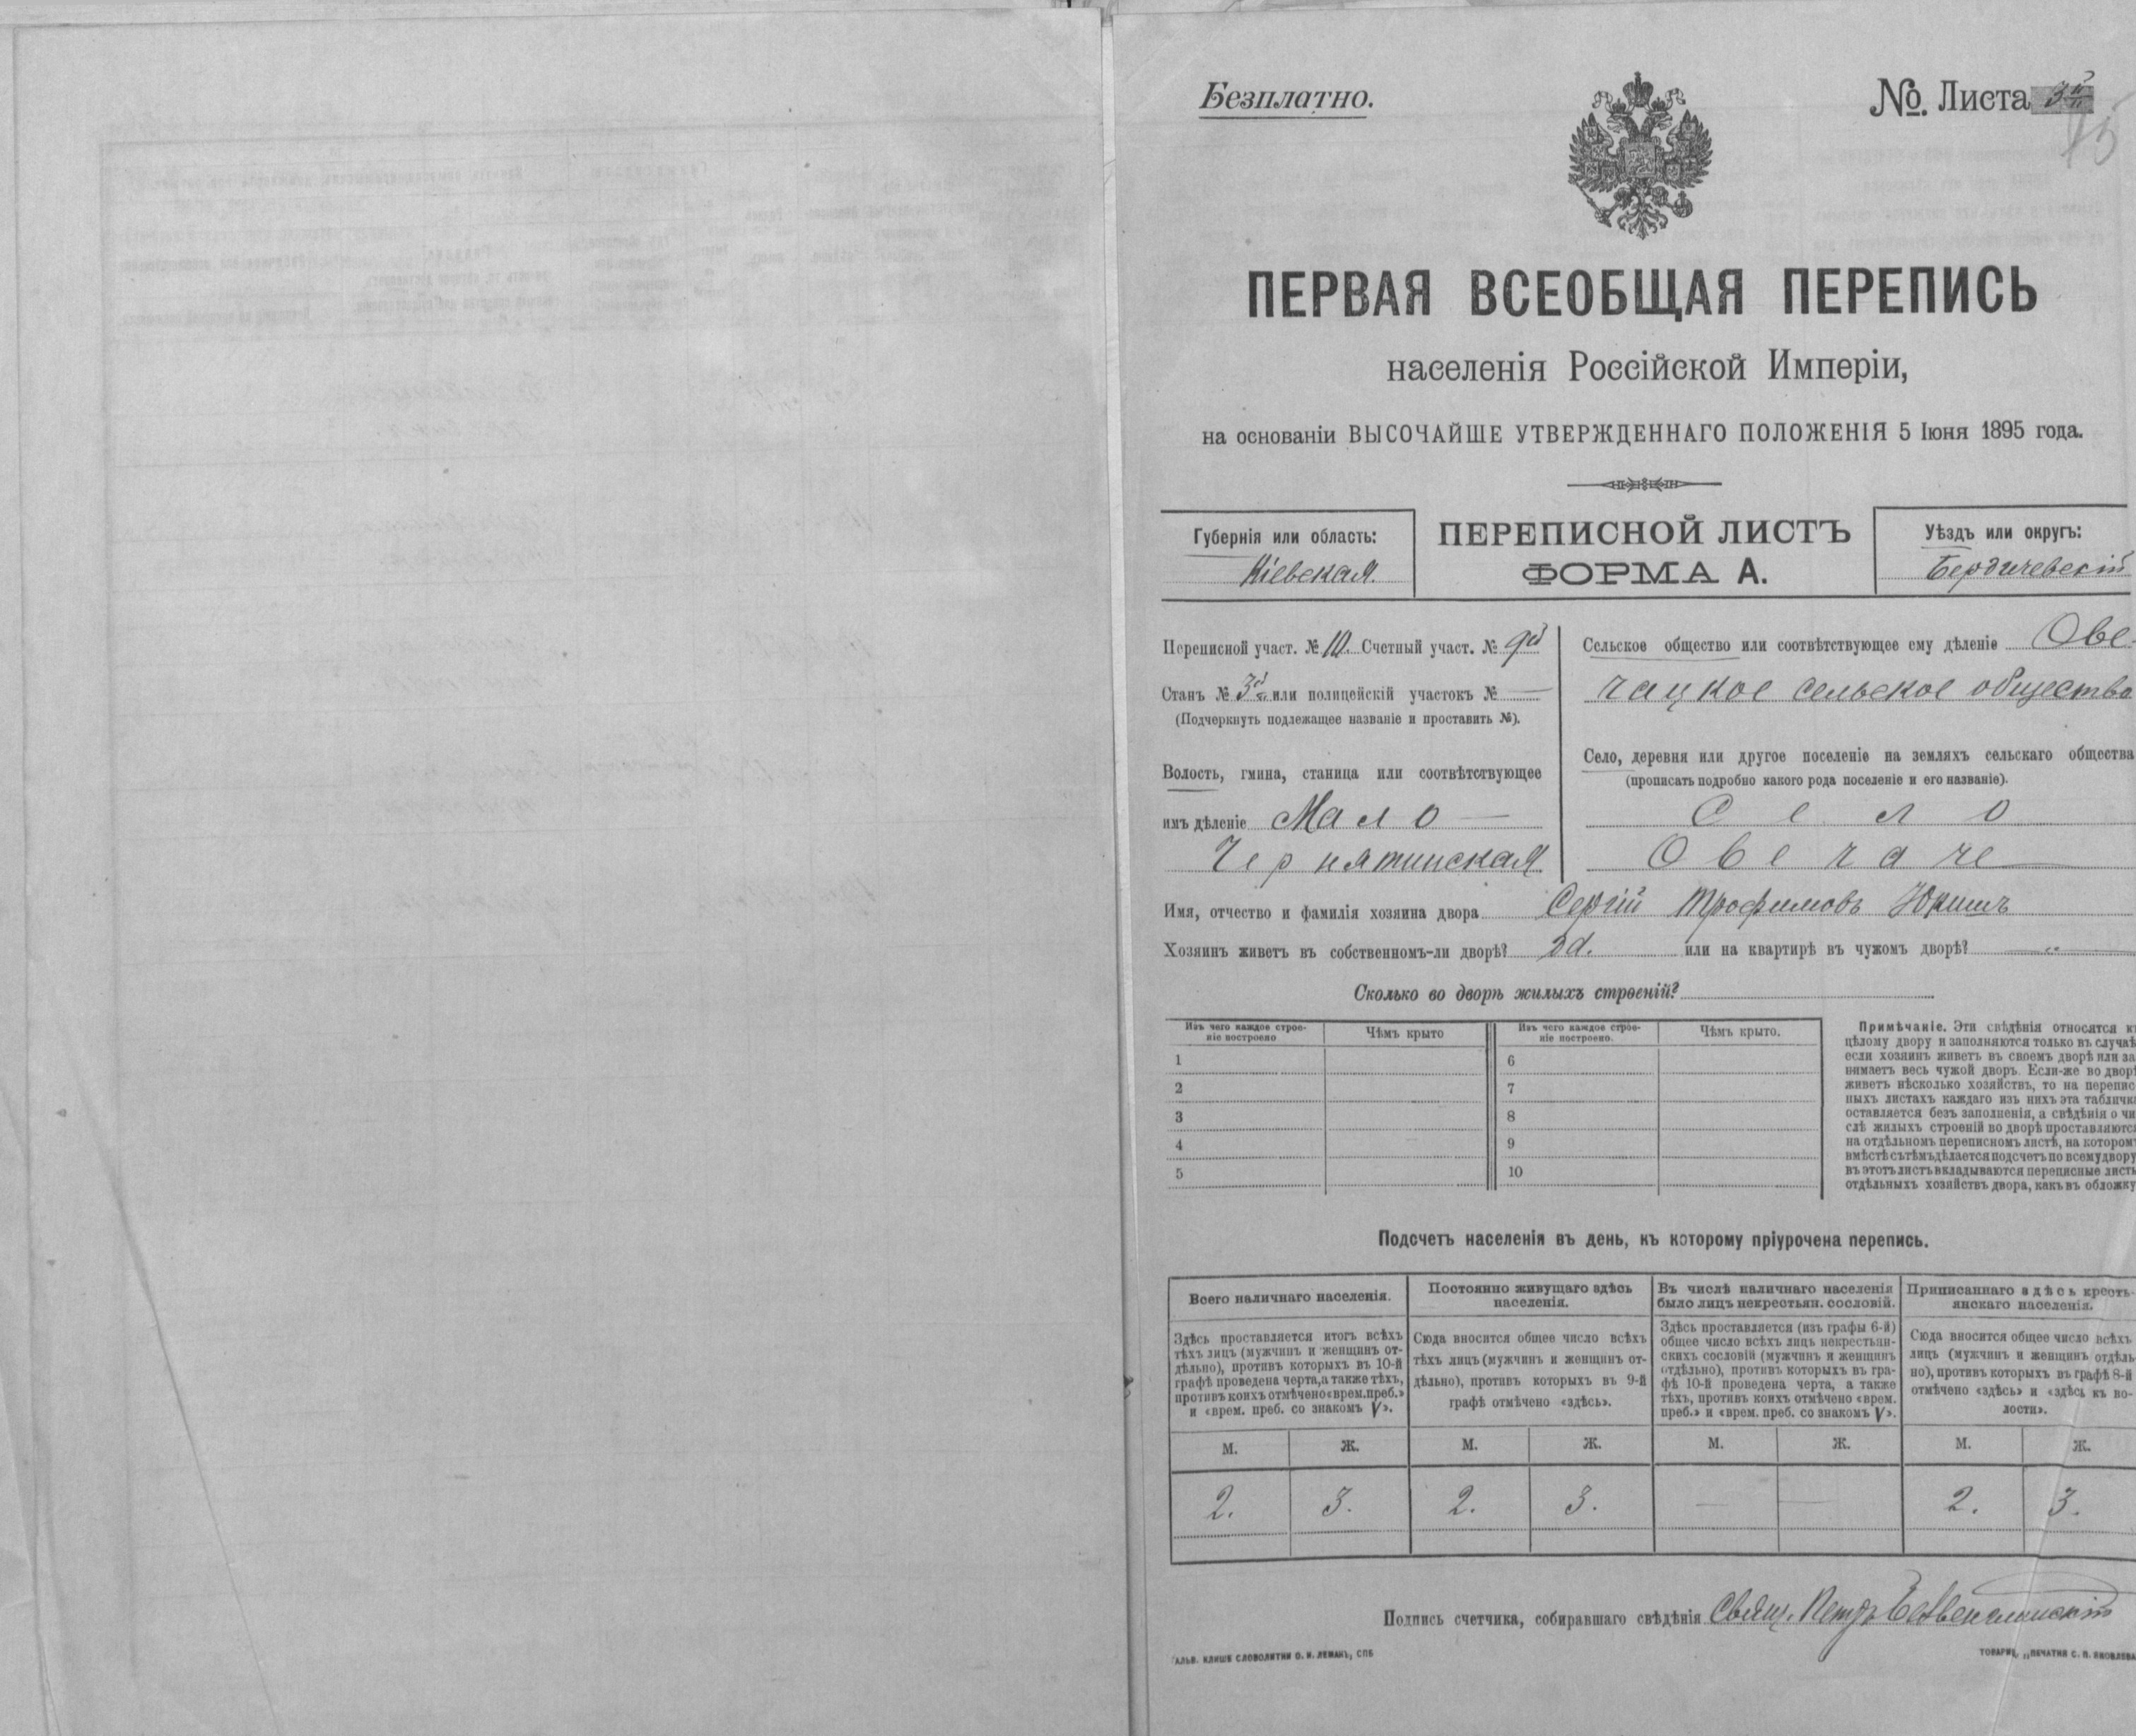 Безплатно.
№ Листа 3й
15
ПЕРВАЯ ВСЕОБЩАЯ ПЕРЕПИСЬ
населенія Россійской Имперіи,
на основаніи ВЫСОЧАЙШЕ УТВЕРЖДЕННАГО ПОЛОЖЕНІЯ 5 Іюня 1895 года.
Губернія или область:
Кіевская.
ПЕРЕПИСНОЙ ЛИСТЪ
ФОРМА А.
Уѣздъ или округъ:
Бердичевскій
Переписной участ. № 10. Счетный участ. № 9й
Станъ № 3й или полицейскій участокъ № —
(Подчеркнуть подлежащее названіе и проставить №).
Волость, гмина, станица или соотвѣтствующее
имъ дѣленіе Мало —
Чернятинская
Сельское общество или соотвѣтствующее ему дѣленіе Ове-
чацкое сельское общество
Село, деревня или другое поселеніе на земляхъ сельскаго общества
(прописать подробно какого рода поселеніе и его названіе).
Село
Овечаче
Имя, отчество и фамилія хозяина двора Сергій Трофимовъ Юришъ
Хозяинъ живетъ въ собственномъ-ли дворѣ? или на квартирѣ въ чужомъ дворѣ? „
Сколько во дворѣ жилыхъ строеній?
Изъ чего каждое строе-
ніе построено
Чѣмъ крыто
Изъ чего каждое строе-
ніе построено.
Чѣмъ крыто.
1 6
2 7
3 8
4 9
5 10
Примѣчаніе. Эти свѣдѣнія относятся къ
цѣлому двору и заполняются только въ случаѣ
если хозяинъ живетъ въ своемъ дворѣ или за
нимаетъ весь чужой дворъ. Если-же во дворѣ
живетъ нѣсколько хозяйствъ, то на перепис
ныхъ листахъ каждаго изъ нихъ эта табличка
оставляется безъ заполненія, а свѣдѣнія о чи
слѣ жилыхъ строеній во дворѣ проставляются
на отдѣльномъ переписномъ листѣ, на которомъ
вмѣстѣ съ тѣмъ дѣлается подсчетъ по всему двору
въ этотъ листъ вкладываются переписные листы
отдѣльныхъ хозяйствъ двора, какъ въ обложку
Подсчетъ населенія въ день, къ которому пріурочена перепись.
Всего наличнаго населенія.
Постоянно живущаго здѣсь
населенія.
Въ числѣ наличнаго населенія
было лицъ некрестьян. сословій.
Приписаннаго здѣсь кресть-
янскаго населенія.
Здѣсь проставляется итогъ всѣхъ
тѣхъ лицъ (мужчинъ и женщинъ от-
дѣльно), противъ которыхъ въ 10-й
графѣ проведена черта, а также тѣхъ,
противъ коихъ отмѣчено «врем. преб.»
и «врем. преб. со знакомъ V».
Сюда вносится общее число всѣхъ
тѣхъ лицъ (мужчинъ и женщинъ от-
дѣльно), противъ которыхъ въ 9-й
графѣ отмѣчено «здѣсь».
Здѣсь проставляется (изъ графы 6-й)
общее число всѣхъ лицъ некрестьян-
скихъ сословій (мужчинъ и женщинъ
отдѣльно), противъ которыхъ въ гра-
фѣ 10-й проведена черта, а также
тѣхъ, противъ коихъ отмѣчено «врем.
преб.» и «врем. преб. со знакомъ V».
Сюда вносится общее число всѣхъ
лицъ (мужчинъ и женщинъ отдѣль-
но), противъ которыхъ въ графѣ 8-й
отмѣчено «здѣсь» и «здѣсь къ во-
лости».
М. Ж. М. Ж. М. Ж. М. Ж.
2. 3. 2. 3. — — 2. 3.
Подпись счетчика, собиравшаго свѣдѣнія Свящ. Петръ
ГАЛЬВ. КЛИШЕ СЛОВОЛИТНИ О. И. ЛЕМАНЪ, СПБ
ТОВАРИЩ. „ПЕЧАТНЯ С. П. ЯКОВЛЕВА